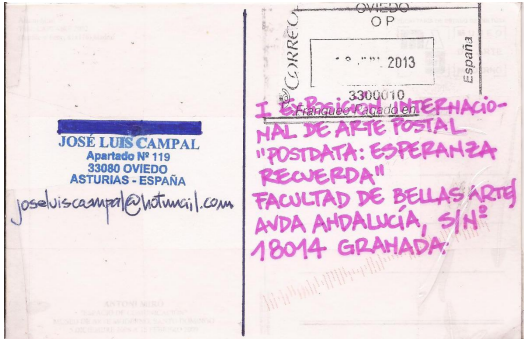 JOSÉ LUIS CAMPAL
Apartado Nº 119
33080 OVIEDO
ASTURIAS - ESPAÑA
joseluiscampal@hotmail.com
OVIEDO
O P
CORREOS
2013
España
3300010
Franqueo Pagado en
I EXPOSICIÓN INTERNACIO-
NAL DE ARTE POSTAL
"POSTDATA: ESPERANZA
RECUERDA"
FACULTAD DE BELLAS ARTES
AVDA ANDALUCÍA, S/Nº
18014 GRANADA.